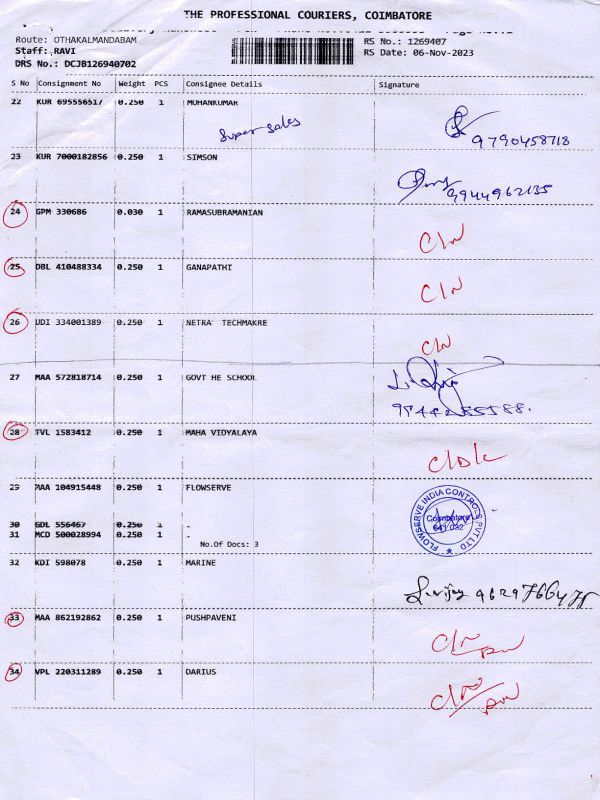 THE PROFESSIONAL COURIERS, COIMBATORE
Route: OTHAKALMANDABAM
Staff: RAVI
DRS No.: DCJB126940702
RS No.: 1269407
RS Date: 06-Nov-2023
S No Consignment No Weight PCS Consignee Details Signature
22 KUR 695556517 0.250 1 MOHANKUMAR
Super sales
9790458718
23 KUR 7000182856 0.250 1 SIMSON
9944962135
24 GPM 330686 0.030 1 RAMASUBRAMANIAN
C/N
25 DBL 410488334 0.250 1 GANAPATHI
C/N
26 UDI 334001389 0.250 1 NETRA TECHMAKRE
C/N
27 MAA 572818714 0.250 1 GOVT HE SCHOOL
28 TVL 1583412 0.250 1 MAHA VIDYALAYA
C/D/C
29 MAA 104915448 0.250 1 FLOWSERVE
FLOWSERVE INDIA CONTROLS PVT LTD
Coimbatore
641 032
30 GDL 556467 0.250 1 -
31 MCD 500028994 0.250 1 -
No.Of Docs: 3
32 KDI 598078 0.250 1 MARINE
33 MAA 862192862 0.250 1 PUSHPAVENI
34 VPL 220311289 0.250 1 DARIUS